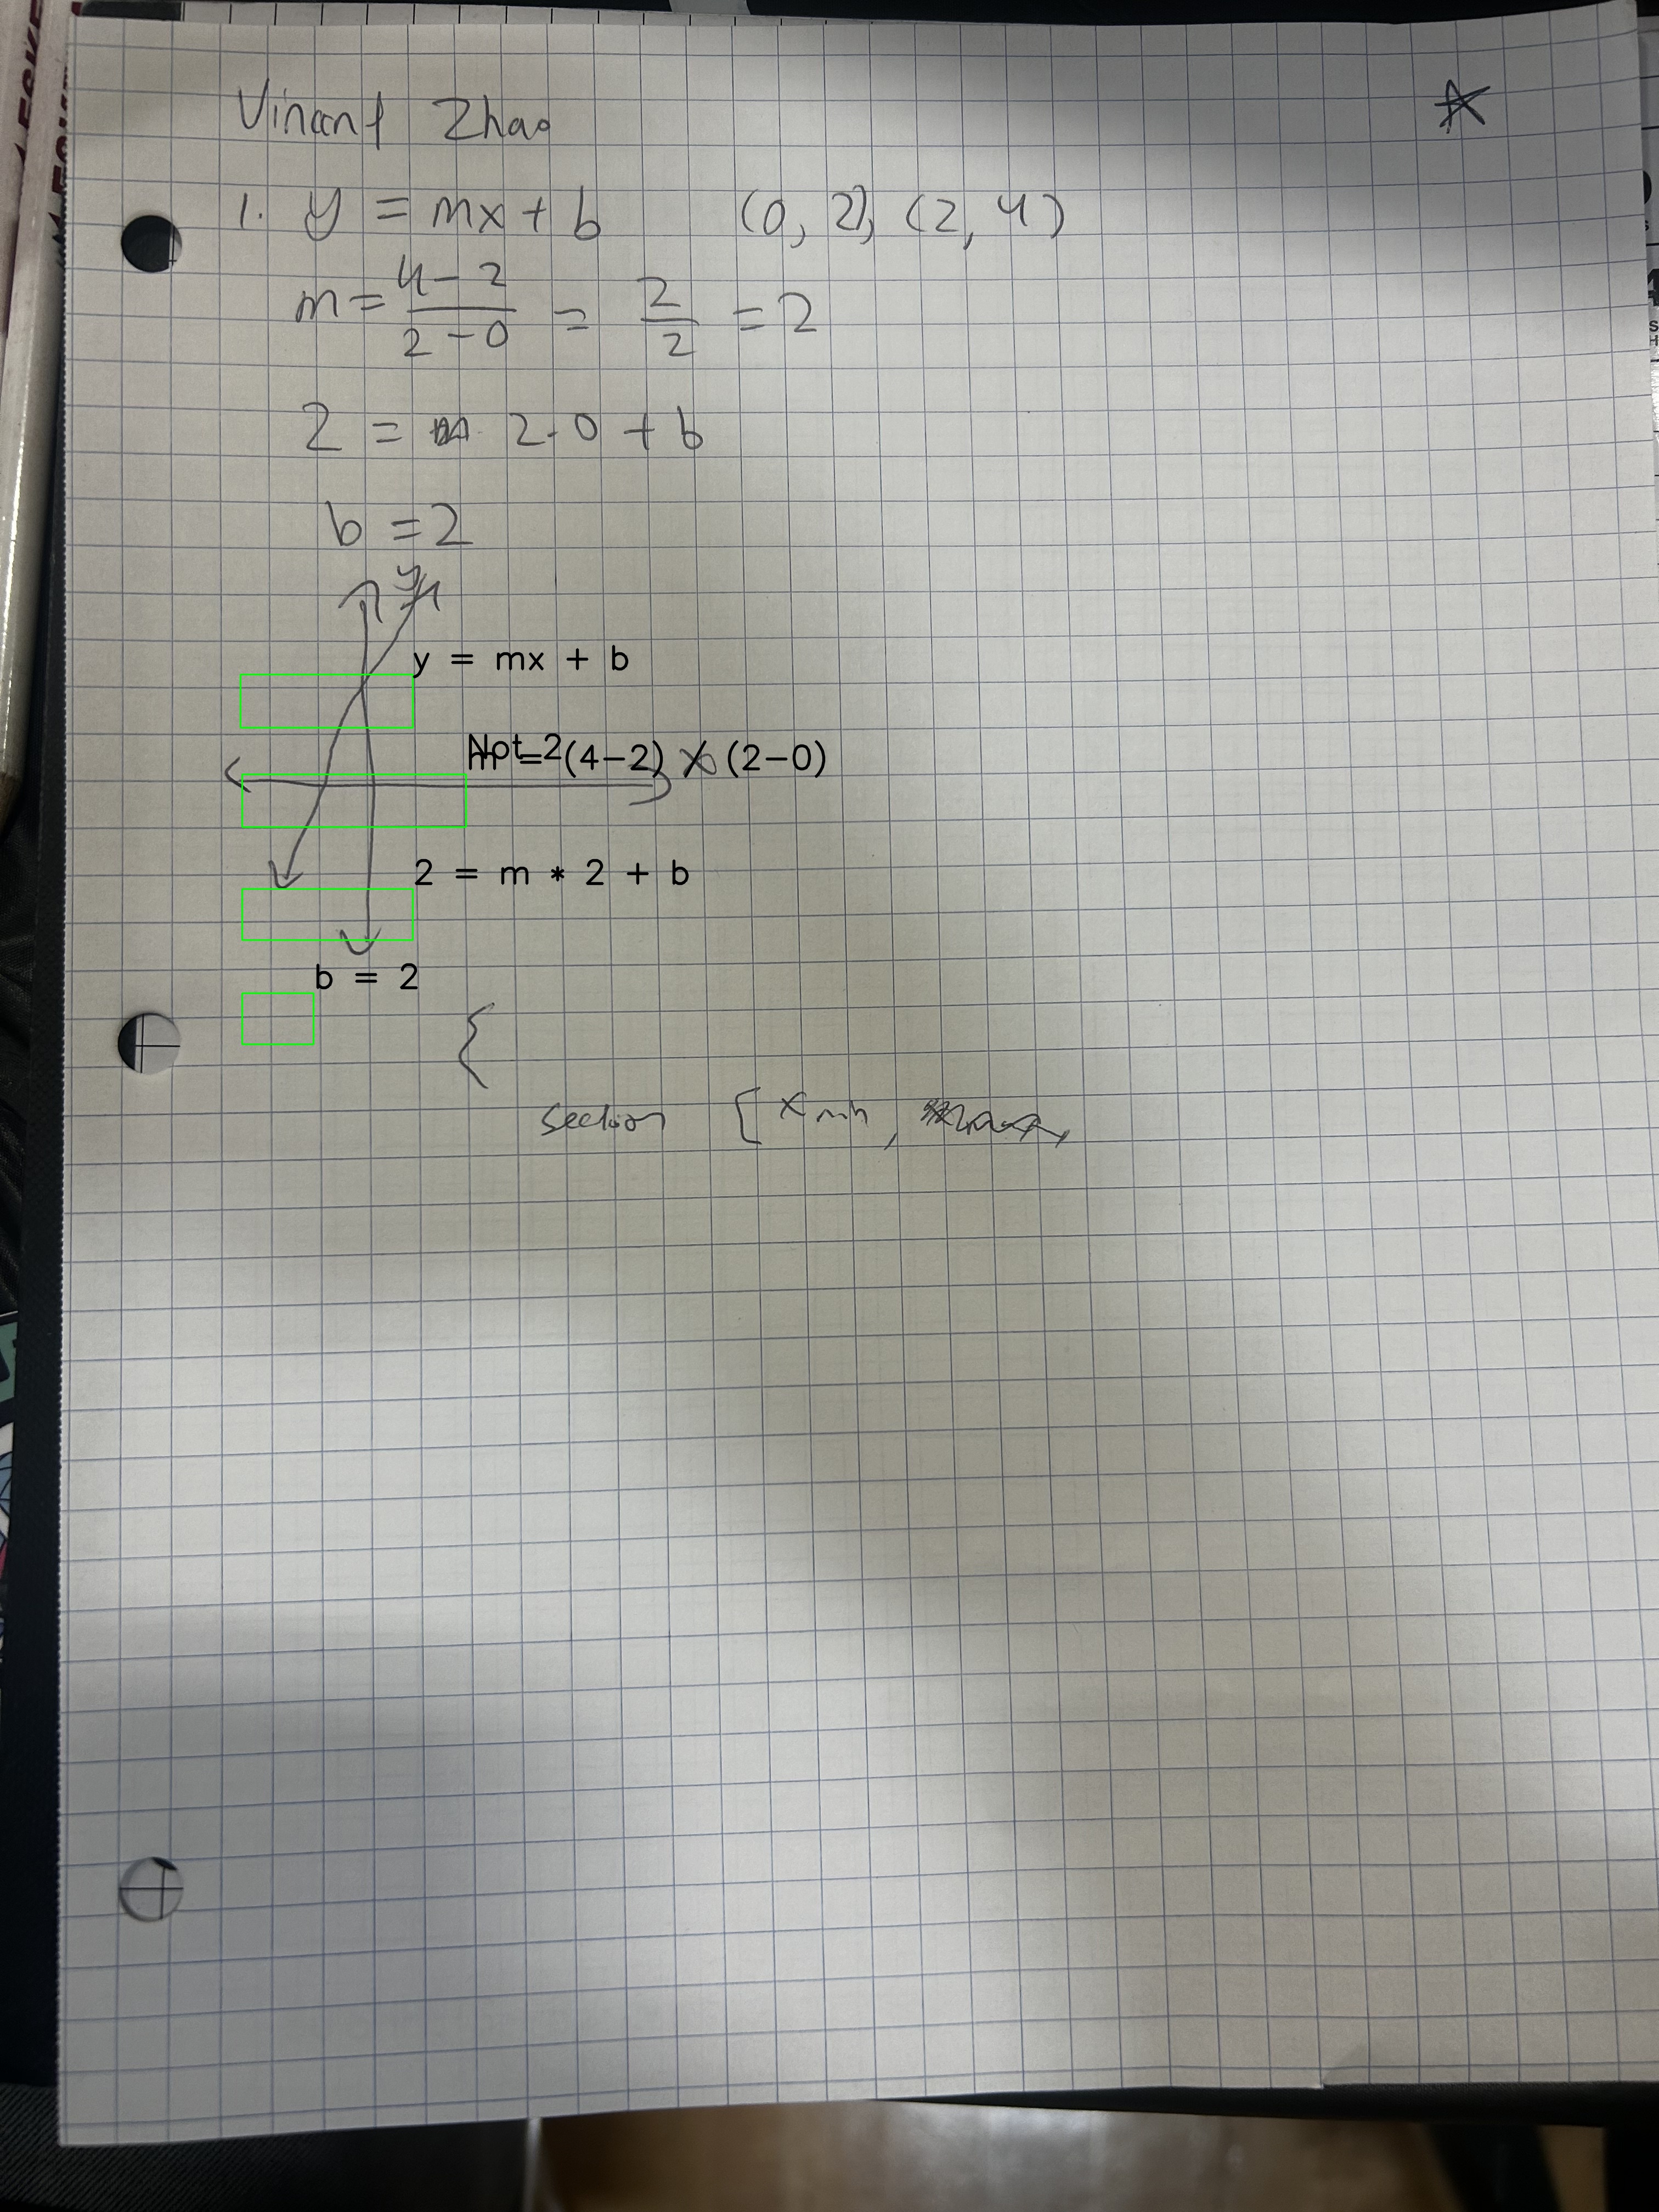 Vincent Zhao
1. y = mx + b (0, 2), (2, 4)
m = 4 - 2 / 2 - 0 = 2 / 2 = 2
2 = 2 · 0 + b
b = 2
y
y = mx + b
Not 2 (4-2) (2-0)
x
2 = m * 2 + b
b = 2
{
section [ x min,